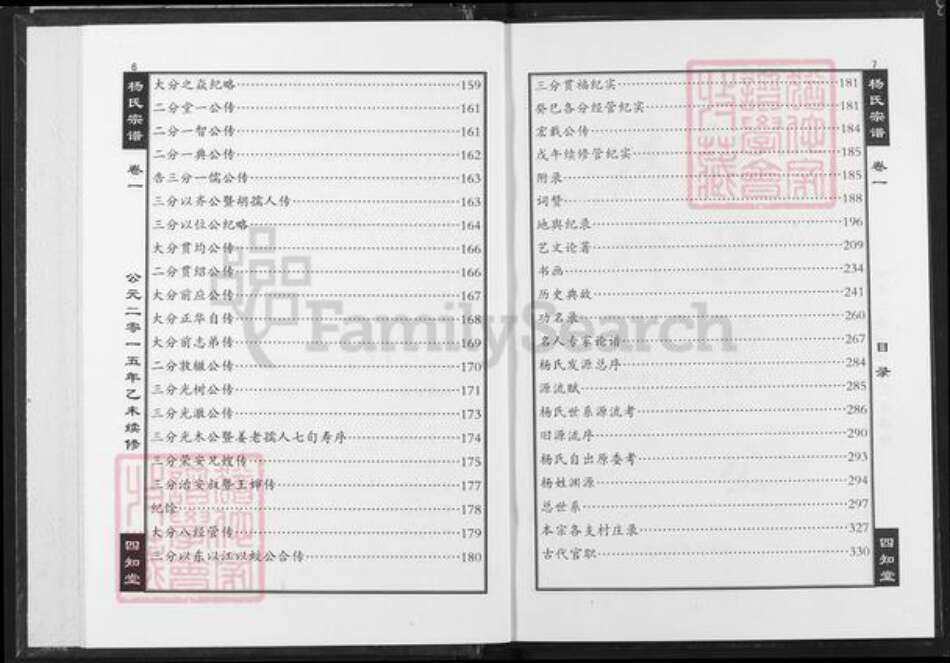 6
杨氏宗谱
卷一
公元二零一五年乙未续修
四知堂
大分之焱纪略 159
二分堂一公传 161
二分一智公传 161
二分一典公传 162
三分一儒公传 163
三分以齐公暨胡孺人传 163
三分以位公纪略 164
大分贯均公传 166
二分贯绍公传 166
大分前应公传 167
大分正华自传 168
大分前志弟传 169
二分敦徽公传 170
三分光树公传 171
三分光澈公传 173
三分光木公暨姜老孺人七旬寿序 174
三分荣安兄嫂传 175
三分治安叔暨王婶传 177
纪馀 178
大分八经管传 179
三分以东以江以蛟公合传 180
7
杨氏宗谱
卷一
目录
四知堂
三分贯福纪实 181
癸巳各分经管纪实 181
宏载公传 184
戊午续修管纪实 185
附录 185
词赞 188
地舆纪录 196
艺文论著 209
书画 234
历史典故 241
功名录 260
名人专家论谱 267
杨氏发源总序 284
源流赋 285
杨氏世系源流考 286
旧源流序 290
杨氏自出原委考 293
杨姓渊源 294
总世系 297
本宗各支村庄录 327
古代官职 330
FamilySearch